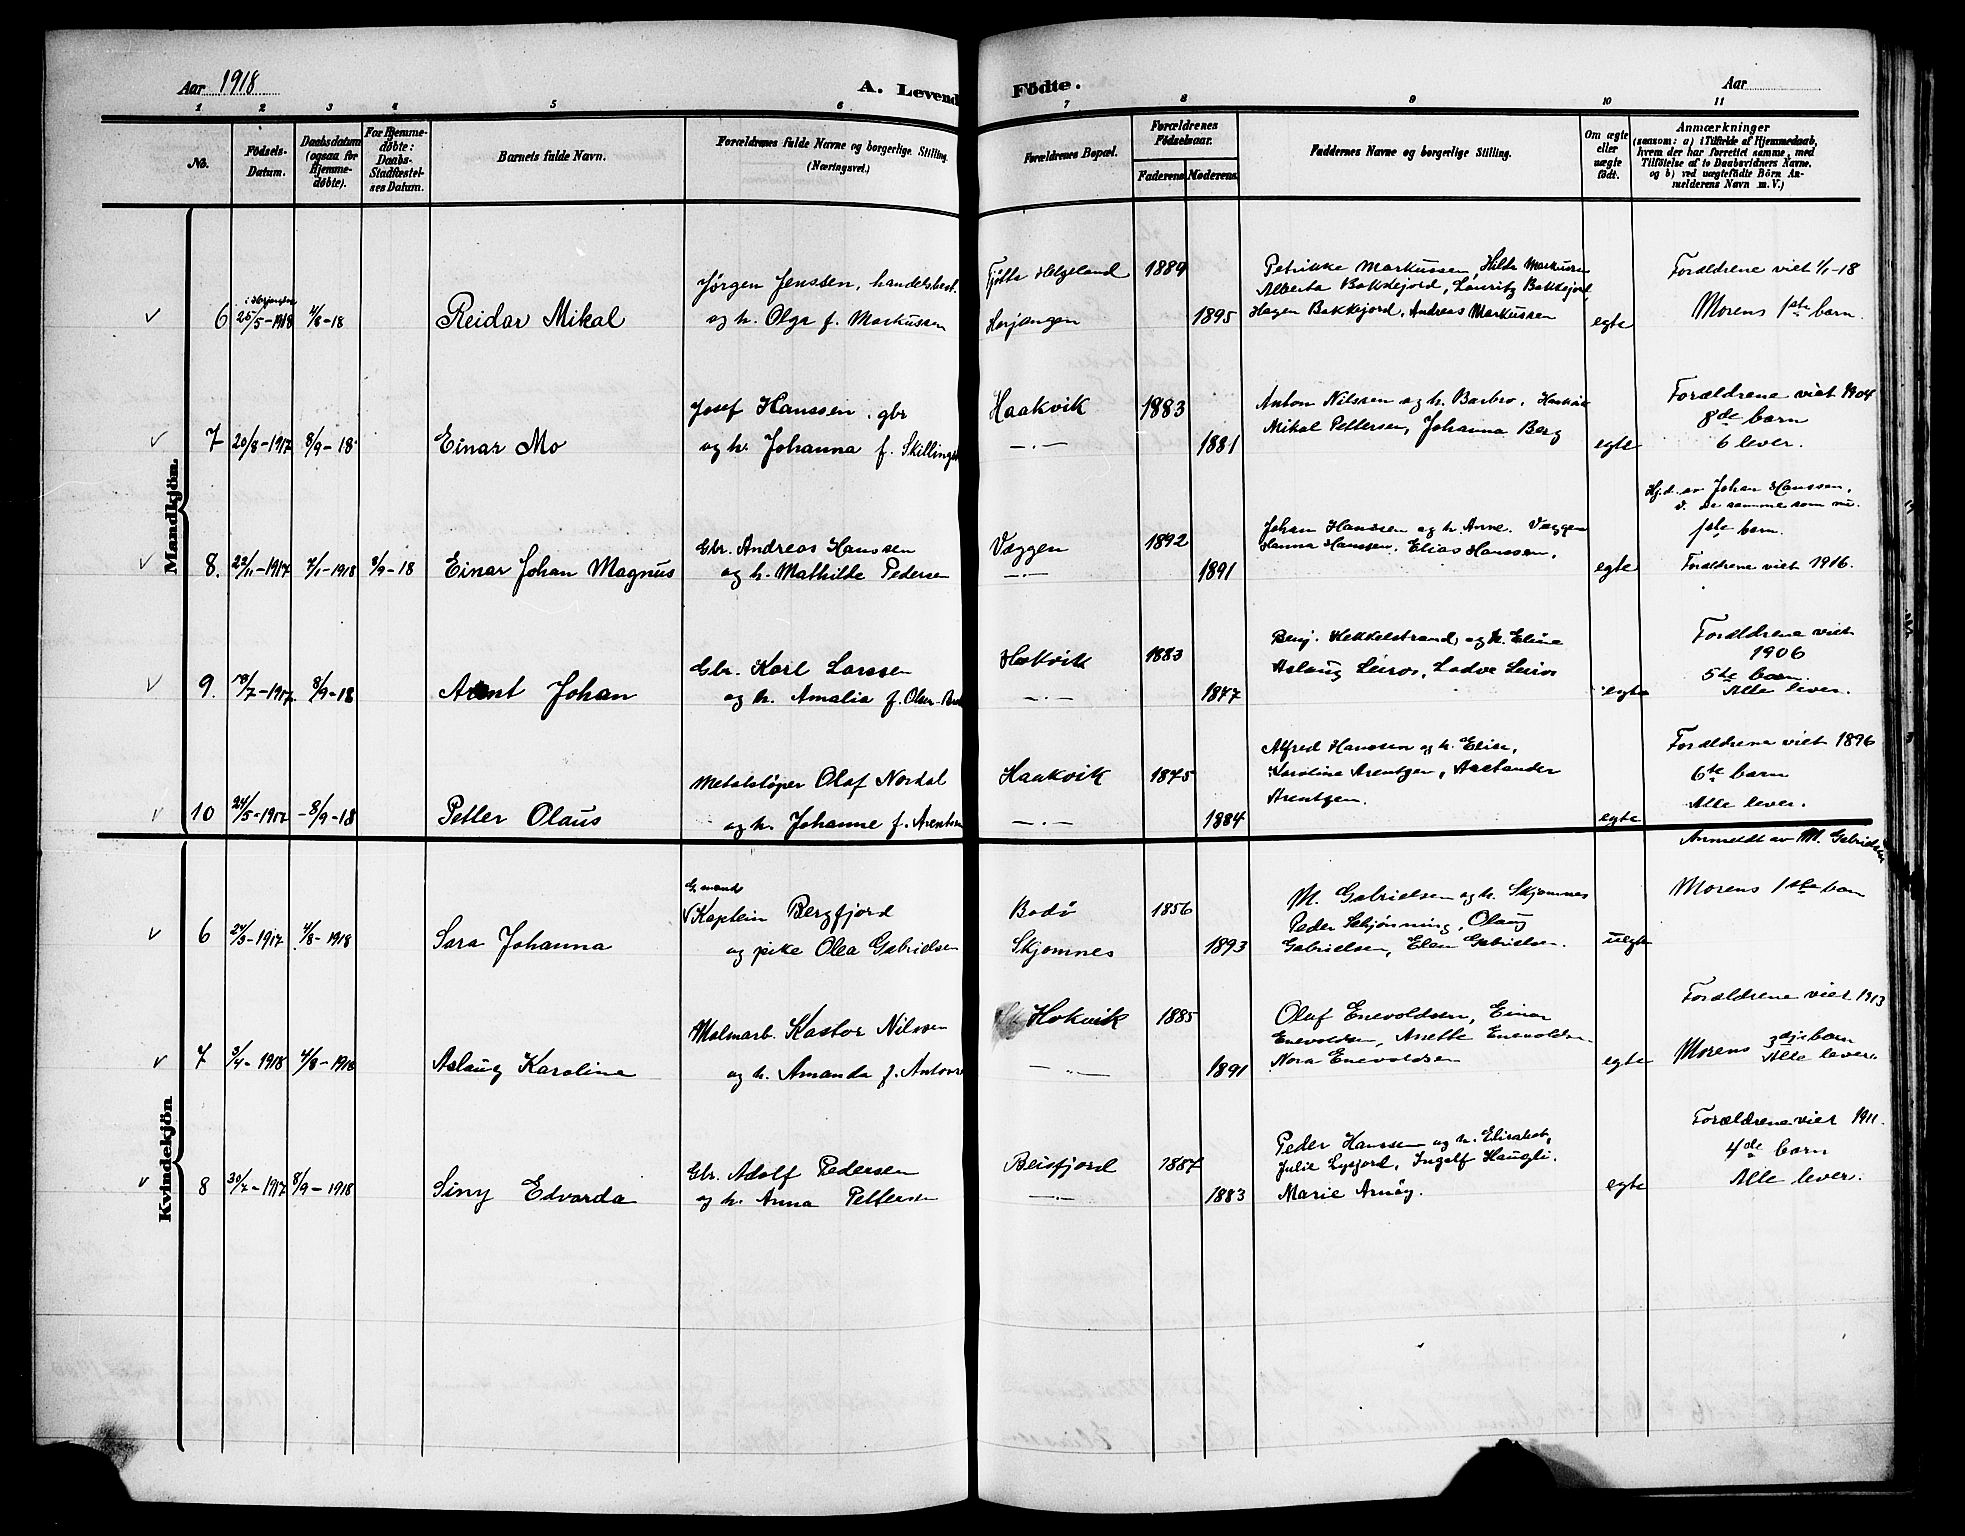 Aar 1918
A. Levend
Födte.
Aar
1 2 3 4 5 6 7 8 9 10 11
No.
Födsels-
Datum.
Daabsdatum
(ogsaa for
Hjemme-
døbte).
For Hjemme-
døbte:
Daabs-
Stadfæstel-
ses Datum.
Barnets fulde Navn.
Forældrenes fulde Navne og borgerlige Stilling.
(Næringsvei.)
Forældrenes Bopæl.
Forældrenes
Födselsaar.
Faderens Moderens
Faddernes Navne og borgerlige Stilling.
Om ægte
eller
uægte
født.
Anmærkninger
(saasom: a) i Tilfælde af Hjemmedaab,
hvem der har forrettet samme, med
Tilföielse af to Daabsvidners Navne,
og b) ved uægtefödte Börn An-
melderens Navn m. V.)
Mandkjön.
Jørgen Jenssen, handelsbest. Tjøtta Helgeland 1889 Petrikke Markussen, Hilda Markussen Forældrene viet 1/1-18
Alberta Bakkejord, Lauritz Bakkejord,
6 25/5-1918 4/8-18 Reidar Mikal og h. Olga f. Markussen Herjangen 1895 Hagen Bakkejord, Andreas Markussen egte Morens 1ste barn.
Josef Hanssen. gbr Haakvik 1883 Anton Nilssen og h. Barbro, Haakvik Forældrene viet 1904
8de barn
7 20/8-1917 8/9-18 Einar Mo og h. Johanna f. —.— 1881 Mikal Pettersen, Johanna Berg egte 6 lever.
Hj.d. av Johan Hanssen,
1ste barn.
Gbr. Andreas Hanssen Væggen 1892 Johan Hanssen og h. Anne. Væggen
Hanna Hanssen, Elias Hanssen,
8. 22/11-1917 4/1-1918 8/9-18 Einar Johan Magnus og h. Mathilde Pedersen —.— 1891 egte Forældrene viet 1916.
Gbr. Karl Larssen Hokvik 1883 Benj. Hekkelstrand og h. Eline Forældrene viet
1906
5te barn.
9. 18/7-1917 8/9-18 Arent Johan og h. Amalia f. —.— 1877 Aslaug Leiros, Ladve Leiros egte Alle lever.
Metalstøper Olaf Nordal Haakvik 1875 Alfred Hanssen og h. Elise, Forældrene viet 1896
Karolina Arentzen, 6te barn
10 24/5-1917 8/9-18 Petter Olaus og h. Johanne f. Arentsen —.— 1884 Arentzen. egte Alle lever.
Kvindekjön
Anmeldt av M. Gabrielsen
Kaptein Bergfjord Bodø 1856 M. Gabrielsen og h. Skjomnes Morens 1ste barn
Peder Schjønning, Olaug
6 4/8-1918 Sara Johanna og pike Olea Gabrielsen Skjomnes 1893 Gabrielsen, Elen Gabrielsen. uegte
Malmarb. Kastor Nilssen Hokvik 1885 Olaf Enevoldsen, Einar Forældrene viet 1913
Enevoldsen, Anette Enevoldsen
7 3/4-1918 4/8-1918 Aslaug Karoline og h. Amanda f. —.— 1891 Nora Enevoldsen egte Morens 3dje barn
Alle lever.
Gbr. Adolf Pedersen Beisfjord 1887 Peder Hanssen og h. Elisabet, Forældrene viet 1911.
Julie Lysjord, Ingolf Haugli. 4de barn
8 8/9-1918 Siny Edvarda og h. Anna Pettersen —.— 1883 Marie Arnøy. egte Alle lever.